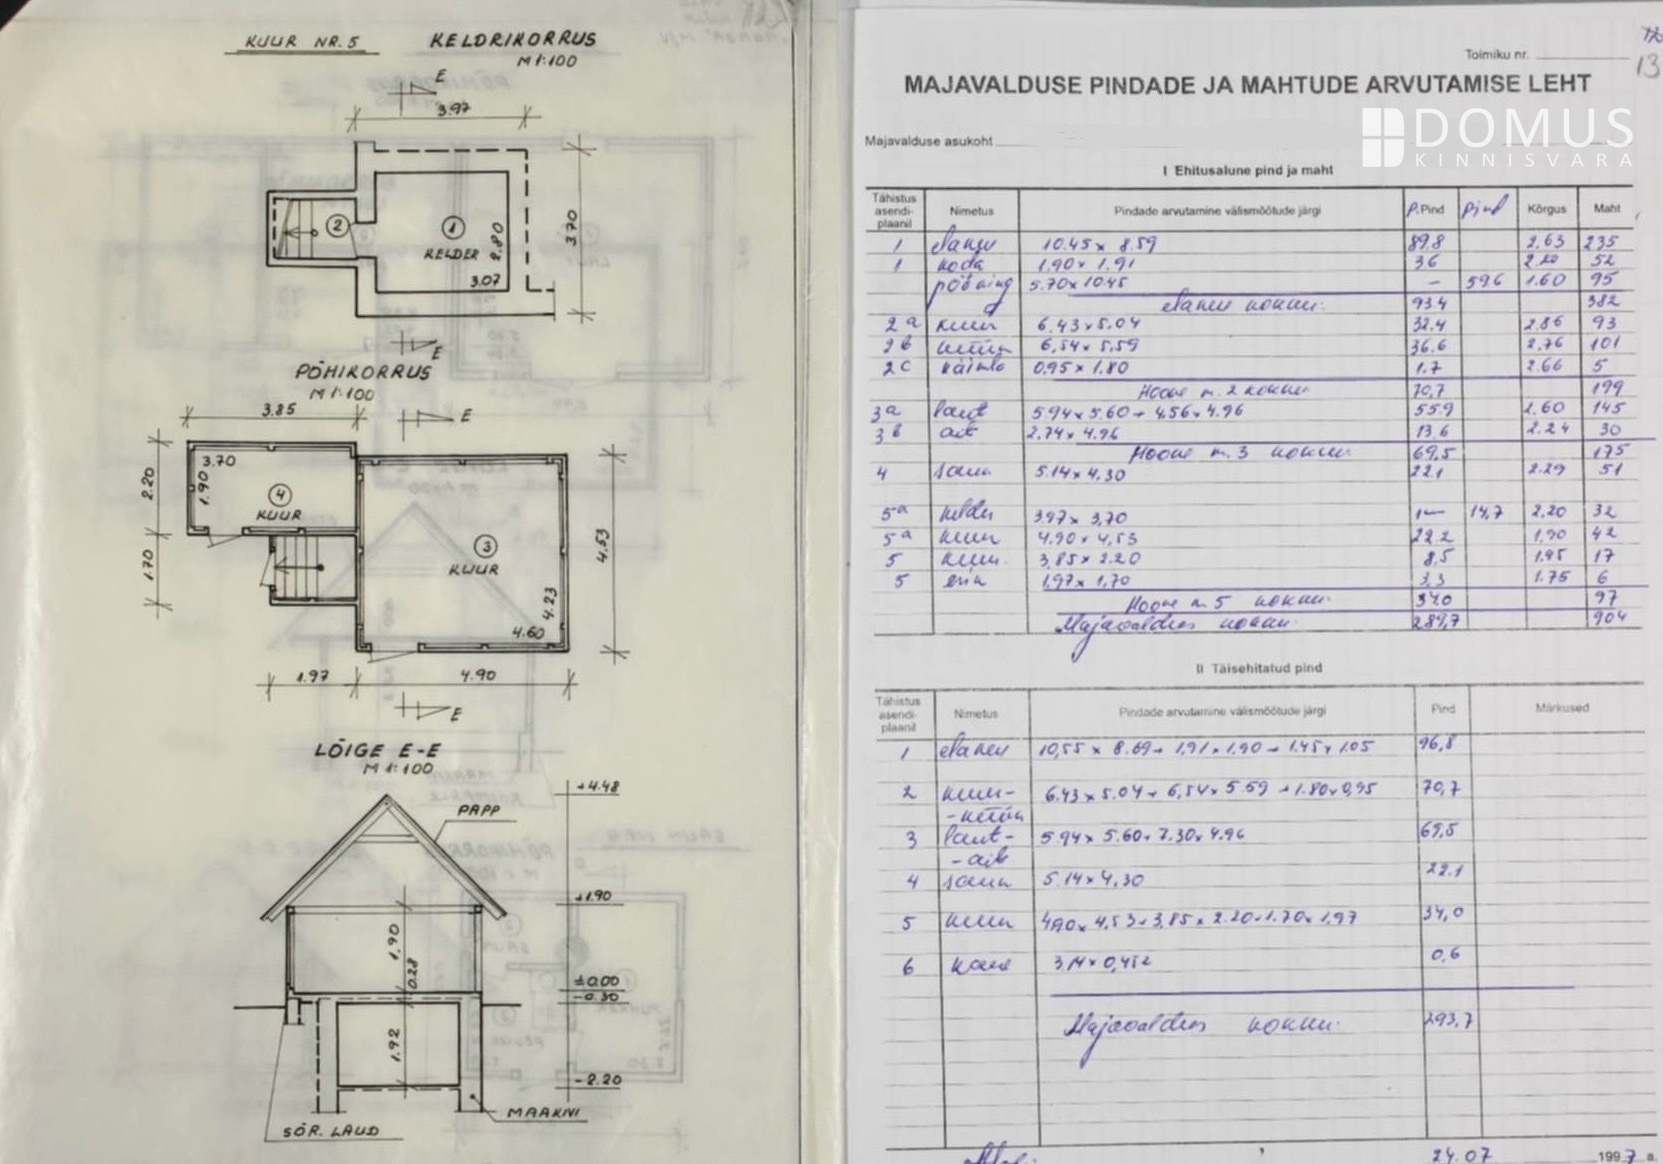 KUUR NR. 5
KELDRIKORRUS
M 1:100
E
3.97
2
1
KELDER
2.80
3.07
3.70
E
PÕHIKORRUS
M 1:100
3.85
E
3.70
1.90
4
KUUR
2.20
1.70
3
KUUR
4.23
4.60
4.53
1.97
4.90
E
LÕIGE E-E
M 1:100
+4.48
PAPP
+1.90
1.90
0.28
±0.00
-0.30
1.92
-2.20
MAAKIVI
SÕR. LAUD
Toimiku nr.
13
MAJAVALDUSE PINDADE JA MAHTUDE ARVUTAMISE LEHT
DOMUS
KINNISVARA
Majavalduse asukoht
I Ehitusalune pind ja maht
Tähistus asendi-plaanil Nimetus Pindade arvutamine välismõõtude järgi P.Pind pind Kõrgus Maht
1 elamu 10.45 x 8.59 89.8 2.63 235
1 koda 1.90 x 1.91 3.6 2.20 52
pööning 5.70 x 10.45 – 59.6 1.60 95
elamu kokku: 93.4 382
2a kuur 6.43 x 5.04 32.4 2.86 93
2b küün 6.54 x 5.59 36.6 2.76 101
2c käimla 0.95 x 1.80 1.7 2.66 5
Hoone nr. 2 kokku 70,7 199
3a laut 5.94 x 5.60 + 4.56 x 4.96 55.9 2.60 145
3b ait 2.74 x 4.96 13,6 2.24 30
Hoone nr. 3 kokku 69,5 175
4 saun 5.14 x 4,30 22.1 2.29 51
5a kelder 3.97 x 3,70 – 14,7 2,20 32
5a kuur 4.90 x 4,53 22.2 1,90 42
5 kuur 3,85 x 2.20 8,5 1.95 17
5 erik 1.97 x 1,70 3,3 1.75 6
Hoone nr. 5 kokku 34.0 97
Majavaldus kokku 289,7 904
II Täisehitatud pind
Tähistus asendi-plaanil Nimetus Pindade arvutamine välismõõtude järgi Pind Märkused
1 elamu 10,55 x 8.69 + 1,91 x 1,90 + 1.45 x 1.05 96,8
2 kuur- 6.43 x 5.04 + 6,54 x 5.59 + 1.80 x 0,95 70,7
-küün
3 laut- 5.94 x 5.60 + 7.30 x 4.96 69,5
-ait
4 saun 5.14 x 4,30 22.1
5 kuur 4.90 x 4,53 + 3,85 x 2.20 + 1.70 x 1,97 34,0
6 kaev 3,14 x 0,45² 0,6
Majavaldus kokku: 293,7
24.07 1997 a.